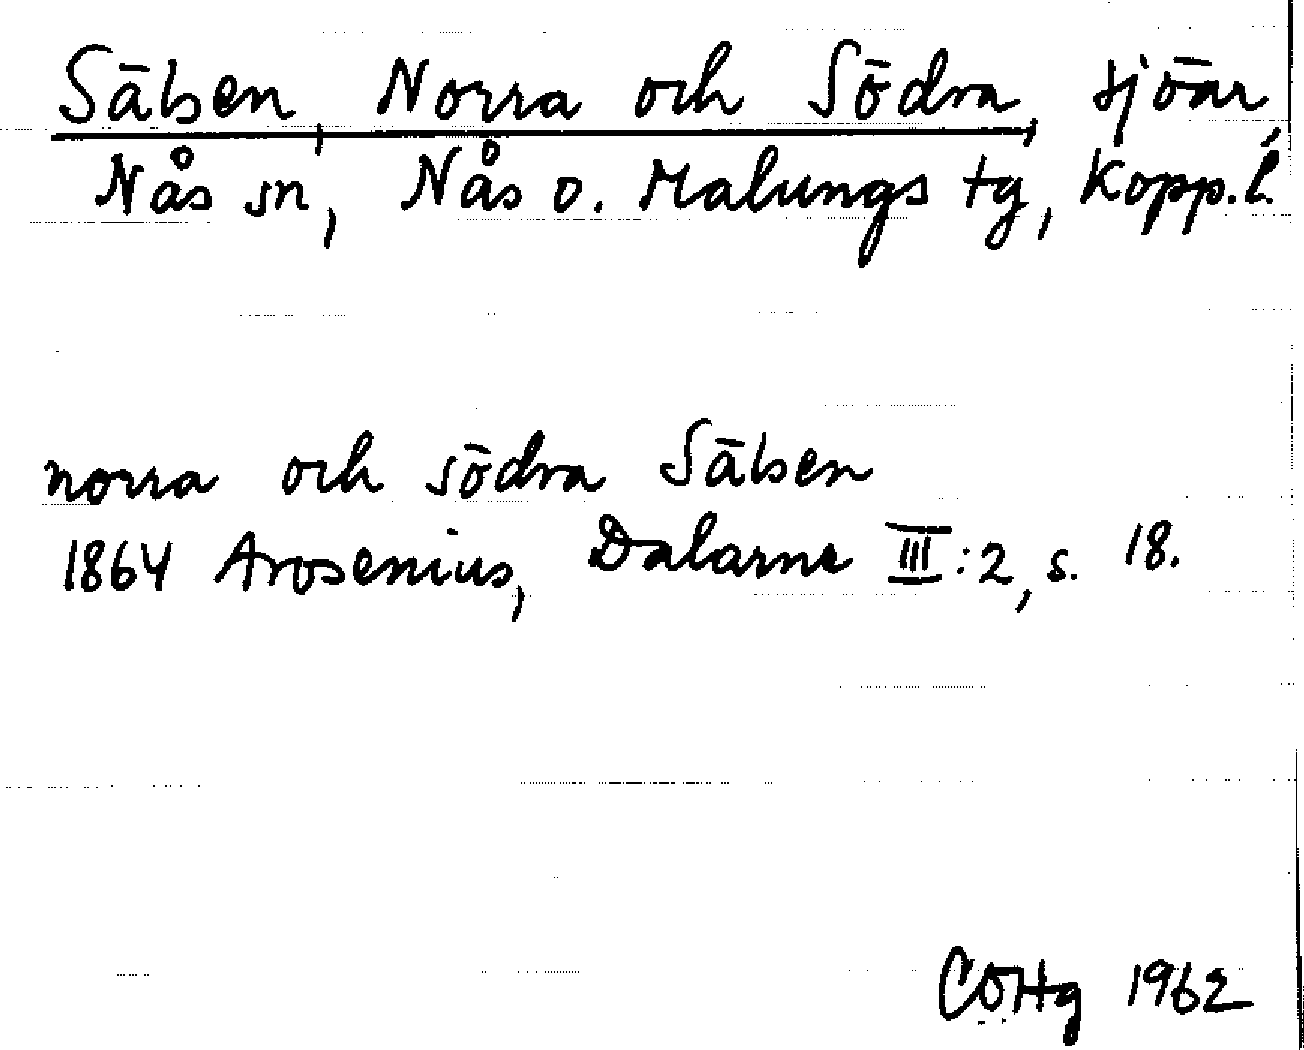 Sälsen, Norra och Södra, sjöar,
Nås sn, Nås o. Malungs tg, Kopp. l.
norra och södra Sälsen
1864 Arosenius, Dalarne III:2, s. 18.
COHg 1962